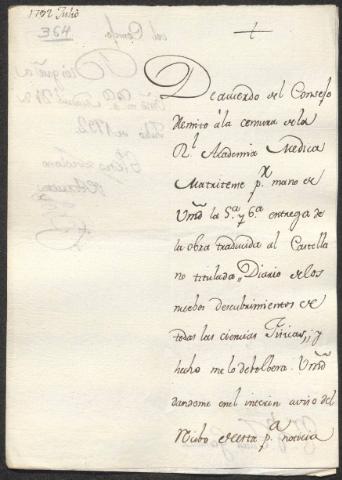 1792 Julio
364
De acuerdo del Consejo
Remito à la censura de la
Rl. Academia Medica
Matritense pr. mano de
Vmd la 5a. y 6a. entrega de
la obra traducida al Castella
no titulada „Diario de los
nuebos descubrimientos de
todas las ciencias Fisicas„ y
hecho me lo debolbera Vmd
dandome en el interin aviso del
Recibo de esta pa. noticia